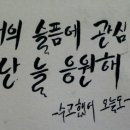 의 슬픔에 관심
난 늘 응원해
-수고했어 오늘도-